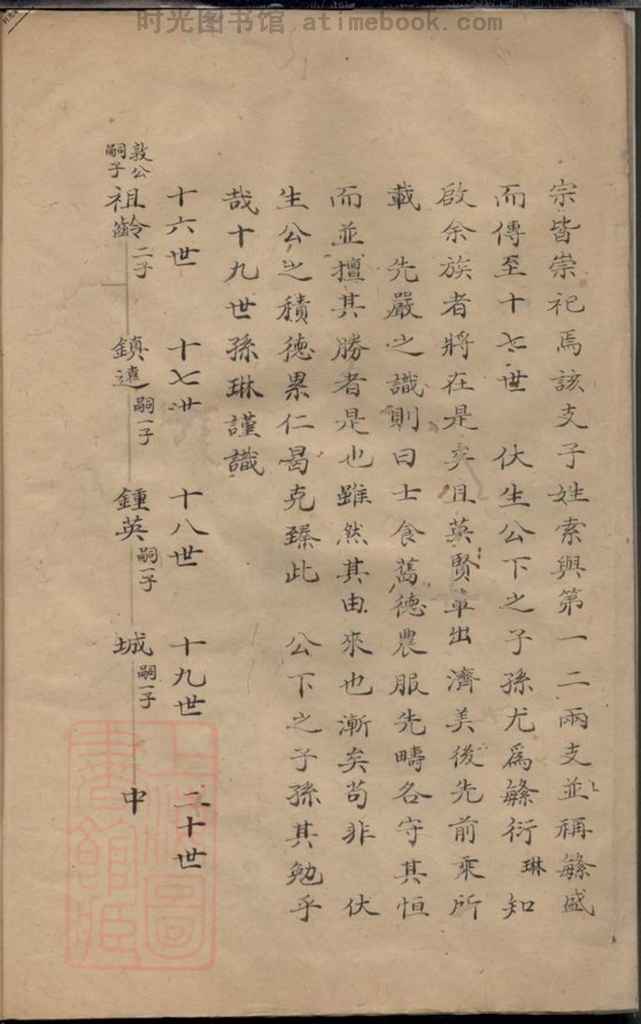 时光图书馆 atimebook.com
宗皆崇祀焉該支子姓索與第一二兩支並稱緐盛
而傳至十七世 伏生公下之子孫尤爲緐衍琳知
啟余族者將在是矣且英賢輩出濟美後先前乘所
載 先嚴之識則曰士食舊德農服先疇各守其恒
而並擅其勝者是也雖然其由來也漸矣苟非 伏
生公之積德累仁曷克臻此 公下之子孫其勉乎
哉十九世孫琳謹識
十六世 十七世 十八世 十九世 二十世
敦公嗣子 祖齡 二子 鎮遠 嗣一子 鍾英 嗣一子 城 嗣一子 中
上海圖書館藏